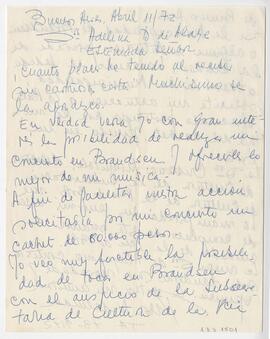 Buenos Aires, Abril 11/72
Sr. Adelino D. de
Estimado Señor
Cuanto placer he tenido al recibir
su cariñosa carta. Muchísimo se
la agradezco.
En verdad vería yo con gran inte-
rés la posibilidad de realizar un
concierto en Brandsen y ofrecerle lo
mejor de mi música.
A fin de facilitar nuestra acción
solicitaría por mi concierto un
cachet de 80.000 pesos.
Yo veo muy factible la posibili-
dad de tocar en Brandsen
con el auspicio de la Subsecre-
taría de Cultura de la Pcia